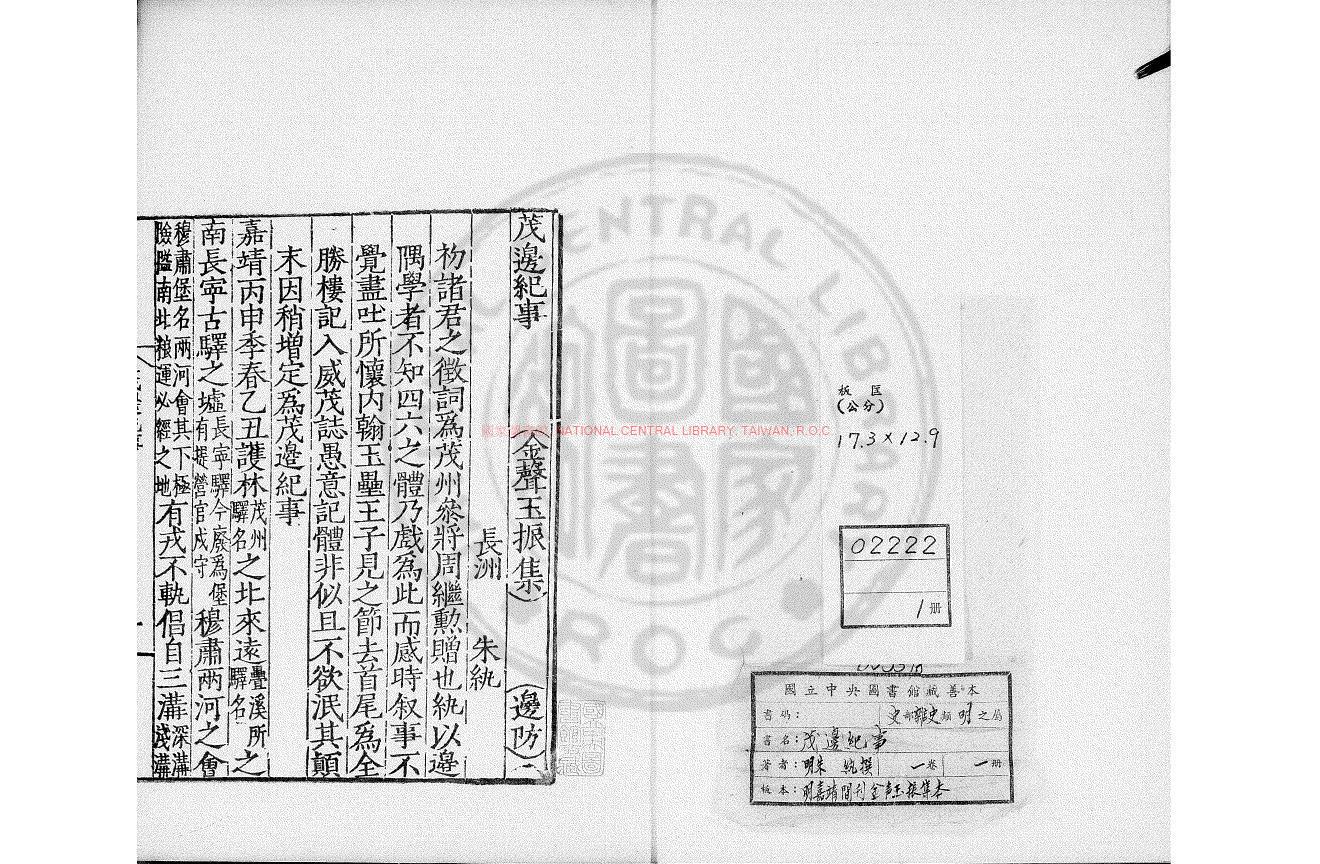 茂邊紀事 金聲玉振集 邊防二
長洲 朱紈
初諸君之徵詞爲茂州叅將周繼勲贈也紈以邊
隅學者不知四六之體乃戲爲此而感時叙事不
覺盡吐所懷内翰玉壘王子見之節去首尾爲全
勝樓記入威茂誌愚意記體非似且不欲泯其顛
末因稍增定爲茂邊紀事
嘉靖丙申季春乙丑護林茂州驛名之北來遠疊溪所驛名之
南長寧古驛之墟長寧驛今廢爲堡有提營官戍守穆肅兩河之會
穆肅堡名兩河會其下極險隘南北粮運必經之地有戎不軌倡自三溝深溝淺溝
CENTRAL LIBRARY
R.O.C
國家圖書館
國家圖書館 NATIONAL CENTRAL LIBRARY, TAIWAN, R.O.C
板匡
(公分)
17.3×12.9
02222
1冊
國立中央圖書館藏善本
書碼: 史部雜史類 明之屬
書名:茂邊紀事
著者:明朱紈撰 一卷 一冊
板本:明嘉靖間刊金声玉振集本